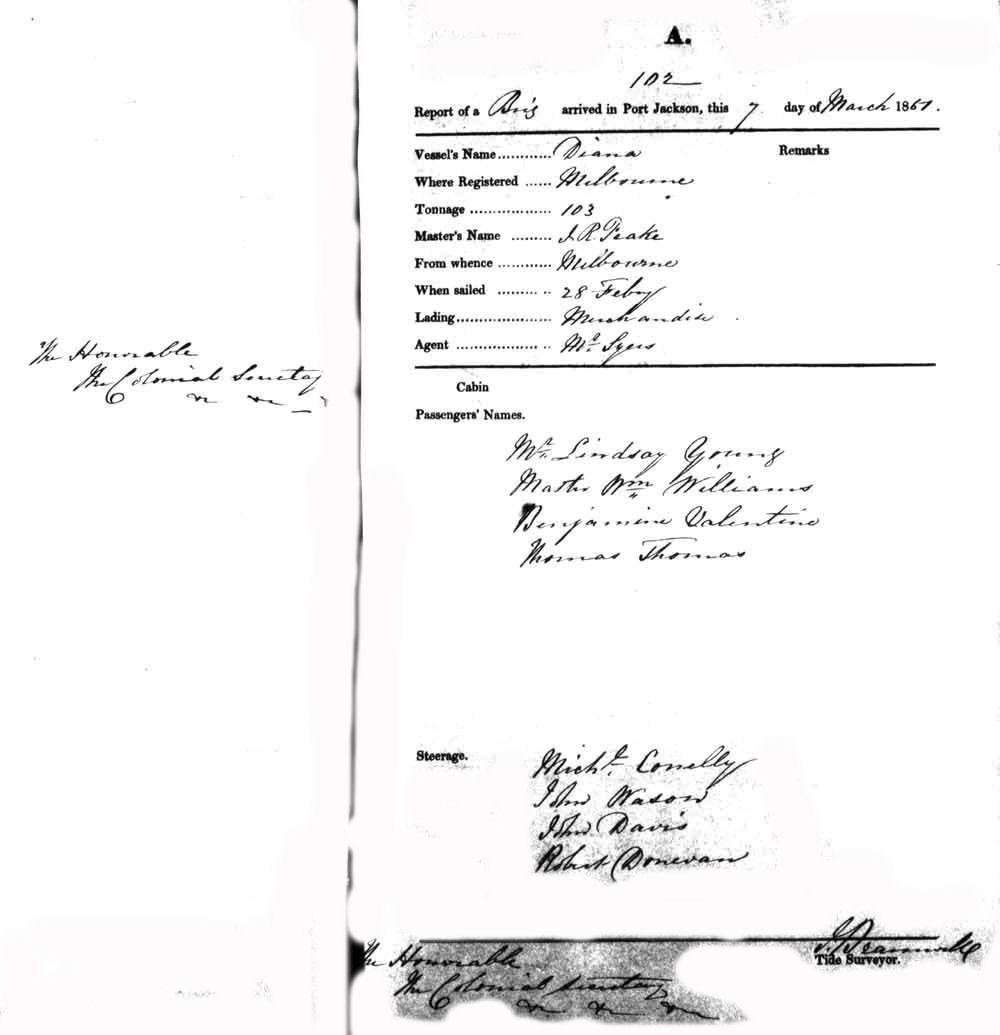 The Honorable
The Colonial Secretary
&c &c
A.
102
Report of a Brig arrived in Port Jackson, this 7 day of March 1851.
Vessel's Name............ Diana Remarks
Where Registered ...... Melbourne
Tonnage .................. 103
Master's Name ......... J. R. Peake
From whence ............ Melbourne
When sailed ......... .. 28 Feby
Lading..................... Merchandise
Agent .................. .. Mr. Syers
Cabin
Passengers' Names.
Mr. Lindsay Young
Master Wm Williams
Benjamine Valentine
Thomas Thomas
Steerage. Michl. Conelly
John Wason
John Davis
Robert Donevan
Tide Surveyor.
The Honorable
The Colonial Secretary
&c &c &c